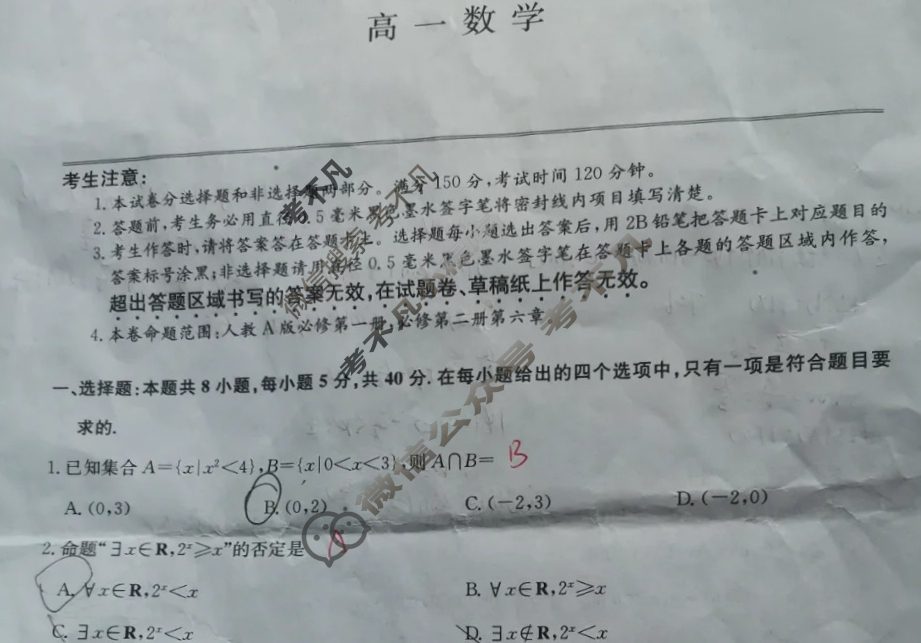 高一数学
考生注意:
1.本试卷分选择题和非选择题两部分。满分150分,考试时间120分钟。
2.答题前,考生务必用直径0.5毫米黑色墨水签字笔将密封线内项目填写清楚。
3.考生作答时,请将答案答在答题卡上。选择题每小题选出答案后,用2B铅笔把答题卡上对应题目的
答案标号涂黑;非选择题请用直径0.5毫米黑色墨水签字笔在答题卡上各题的答题区域内作答,
超出答题区域书写的答案无效,在试题卷、草稿纸上作答无效。
4.本卷命题范围:人教A版必修第一册,必修第二册第六章
一、选择题:本题共8小题,每小题5分,共40分.在每小题给出的四个选项中,只有一项是符合题目要
求的.
1.已知集合A={x|x²<4},B={x|0<x<3},则A∩B= B
A.(0,3) B.(0,2) C.(-2,3) D.(-2,0)
2.命题“∃x∈R,2ˣ≥x”的否定是
A.∀x∈R,2ˣ<x B.∀x∈R,2ˣ≥x
C.∃x∈R,2ˣ<x D.∃x∉R,2ˣ<x
微信搜索 考不凡
考不凡
微信公众号 考不凡